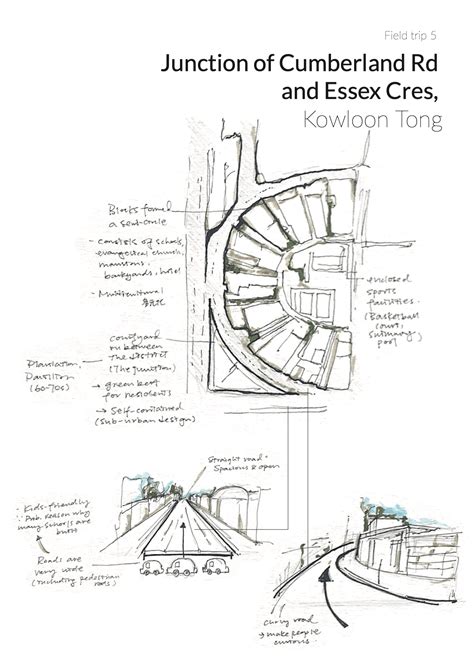 Field trip 5
Junction of Cumberland Rd
and Essex Cres,
Kowloon Tong
Blocks formed
a semi-circle
- consists of schools,
evangelical church,
mansions,
backyards, hotel
- Multicultural
enclosed
sports
facilities.
(Basketball
court,
swimming
pool)
courtyard
in between
the district
(The junction)
→ green belt
for residents
→ Self-contained
(sub-urban design)
Plantation,
Pavilion
(60-70s)
Straight road
Spacious & open
Kids-friendly
∵ Prob. reason why
many schools are
built
Roads are
very wide
(including pedestrian
roads)
curvy road
→ make people
curious